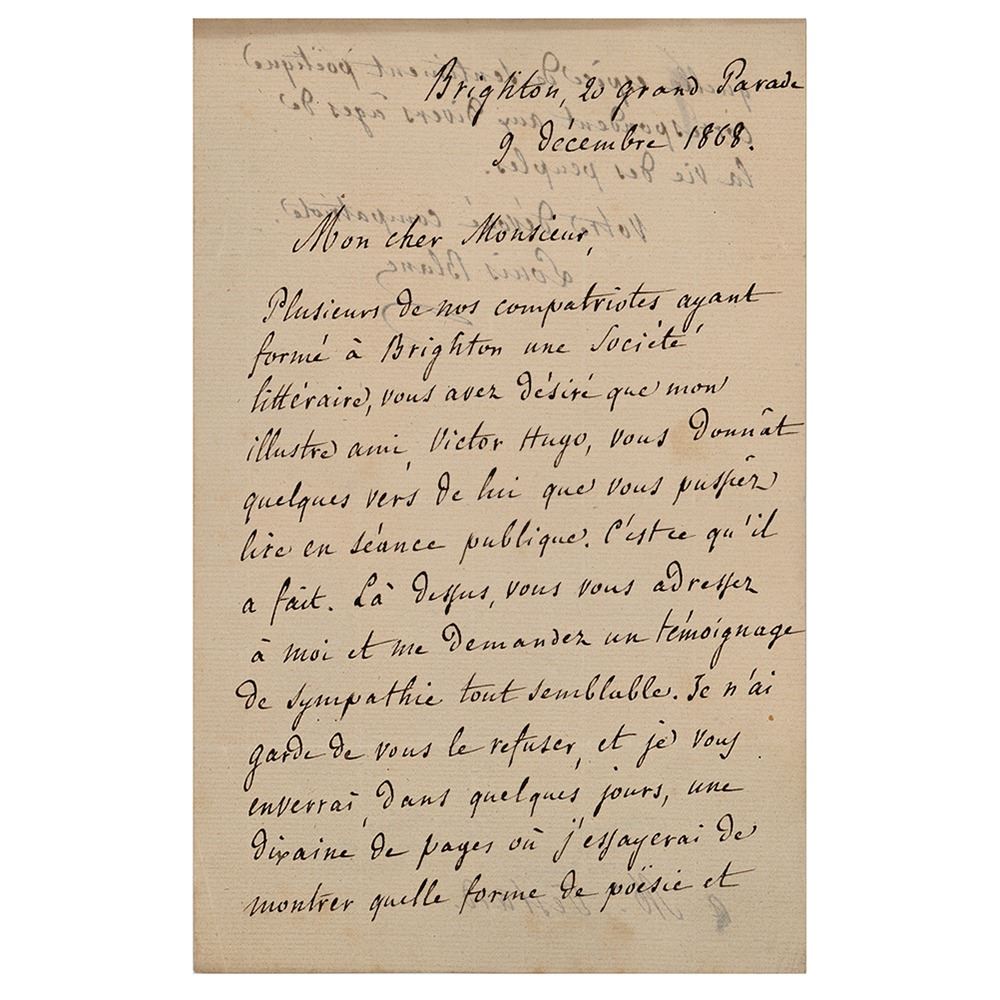 Brighton, 20 grand Parade
9 décembre 1868.
Mon cher Monsieur,
Plusieurs de nos compatriotes ayant
formé à Brighton une Société
littéraire, vous avez désiré que mon
illustre ami, Victor Hugo, vous donnât
quelques vers de lui que vous pussiez
lire en séance publique. C'est ce qu'il
a fait. Là dessus, vous vous adressez
à moi et me demandez un témoignage
de sympathie tout semblable. Je n'ai
garde de vous le refuser, et je vous
enverrai, dans quelques jours, une
dixaine de pages où j'essayerai de
montrer quelle forme de poësie et
quelle espèce de sentiment poëtique
correspondent aux divers âges de
la vie des peuples.
Votre dévoué compatriote.
Louis Blanc